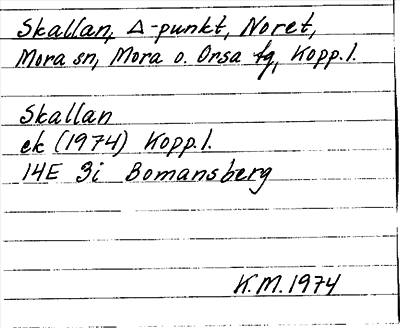 Skallan, Δ-punkt, Noret,
Mora sn, Mora o. Orsa tg, Kopp.l.
Skallan
ek (1974) Kopp.l.
14E 3i Bomansberg
K.M.1974